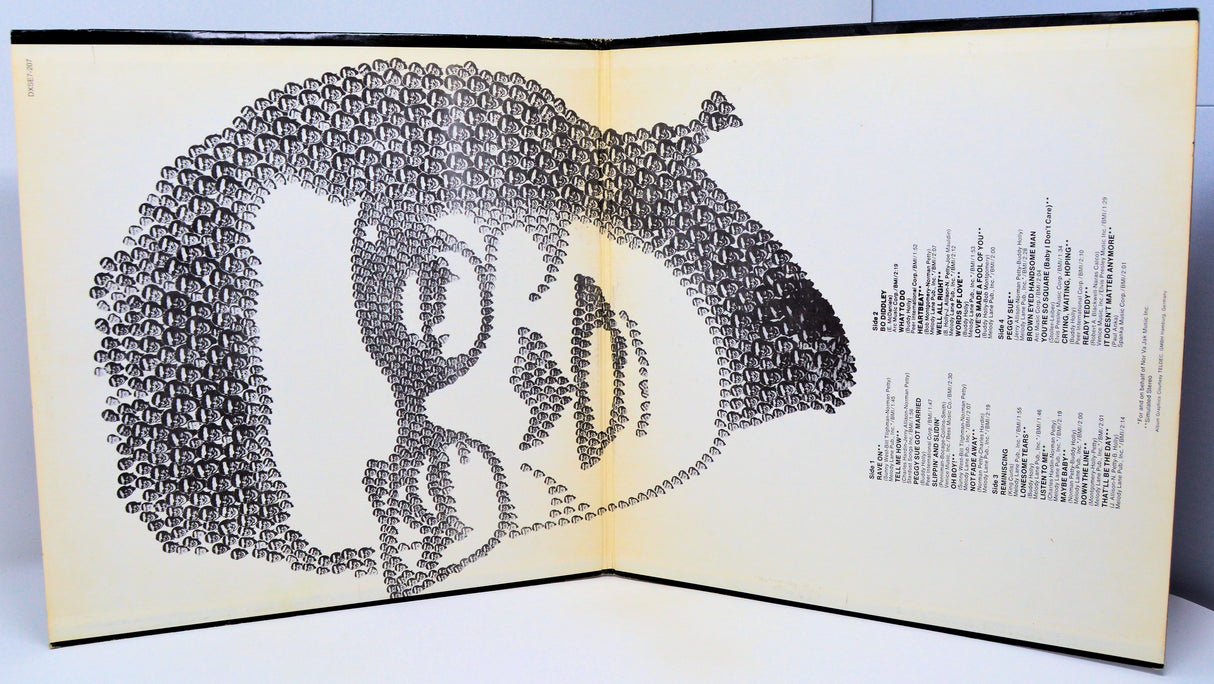 DXSE7-207
Side 1
RAVE ON**
(Sunny West-Bill Tilghman-Norman Petty)
Melody Lane Pub., Inc.*/BMI/1:45
TELL ME HOW**
(Charles Hardin-Jerry Allison-Norman Petty)
PEGGY SUE GOT MARRIED
(Buddy Holly)
Peer International Corp./BMI/1:47
SLIPPIN' AND SLIDIN'
(Penniman-Bocage-Collins-Smith)
Venice Music Inc./Bess Music Co./BMI/2:30
OH BOY!**
(Sunny West-Bill Tilghman-Norman Petty)
Melody Lane Pub., Inc.*/BMI/2:07
NOT FADE AWAY**
(Norman Petty-Charles Hardin)
Melody Lane Pub., Inc.*/BMI/2:19
Side 2
BO DIDDLEY
(E. McDaniels)
Arc Music Corp./BMI/2:19
WHAT TO DO
(Buddy Holly)
Peer International Corp./BMI/1:52
HEARTBEAT**
(Bob Montgomery-Norman Petty)
Melody Lane Pub., Inc.*/BMI/2:07
WELL ALL RIGHT**
(B. Holly-J. Allison-N. Petty-Joe Mauldin)
Melody Lane Pub., Inc.*/BMI/2:12
WORDS OF LOVE**
(Buddy Holly)
Melody Lane Pub., Inc.*/BMI/1:53
LOVE'S MADE A FOOL OF YOU**
(Buddy Holly-Bob Montgomery)
Melody Lane Pub., Inc.*/BMI/2:00
Side 3
REMINISCING
(King Curtis)
Melody Lane Pub., Inc.*/BMI/1:55
LONESOME TEARS**
(Buddy Holly)
Melody Lane Pub., Inc.*/BMI/1:46
LISTEN TO ME**
(Charles Hardin-Norman Petty)
Melody Lane Pub., Inc.*/BMI/2:19
MAYBE BABY**
(Norman Petty-Buddy Holly)
Melody Lane Pub., Inc.*/BMI/2:00
DOWN THE LINE**
(Montgomery-Holly-Petty)
Melody Lane Pub., Inc.*/BMI/2:01
THAT'LL BE THE DAY**
(J. Allison-N. Petty-B. Holly)
Melody Lane Pub., Inc.*/BMI/2:14
Side 4
PEGGY SUE**
(Jerry Allison-Norman Petty-Buddy Holly)
Melody Lane Pub., Inc.*/BMI/2:28
BROWN EYED HANDSOME MAN
Arc Music Corp./BMI/2:04
YOU'RE SO SQUARE (Baby I Don't Care)**
Elvis Presley Music Corp./BMI/1:34
CRYING, WAITING, HOPING**
(Buddy Holly)
Peer International Corp./BMI/2:10
READY TEDDY**
(Robert A. Blackwell-John Marascalco)
Venice Music, Inc./Elvis Presley Music Inc./BMI/1:29
IT DOESN'T MATTER ANYMORE**
(Paul Anka)
Spanka Music Corp./BMI/2:01
*For and on behalf of Nor Va Jak Music Inc.
**Simulated Stereo
Album Graphics Courtesy TELDEC, GMBH Hamburg, Germany